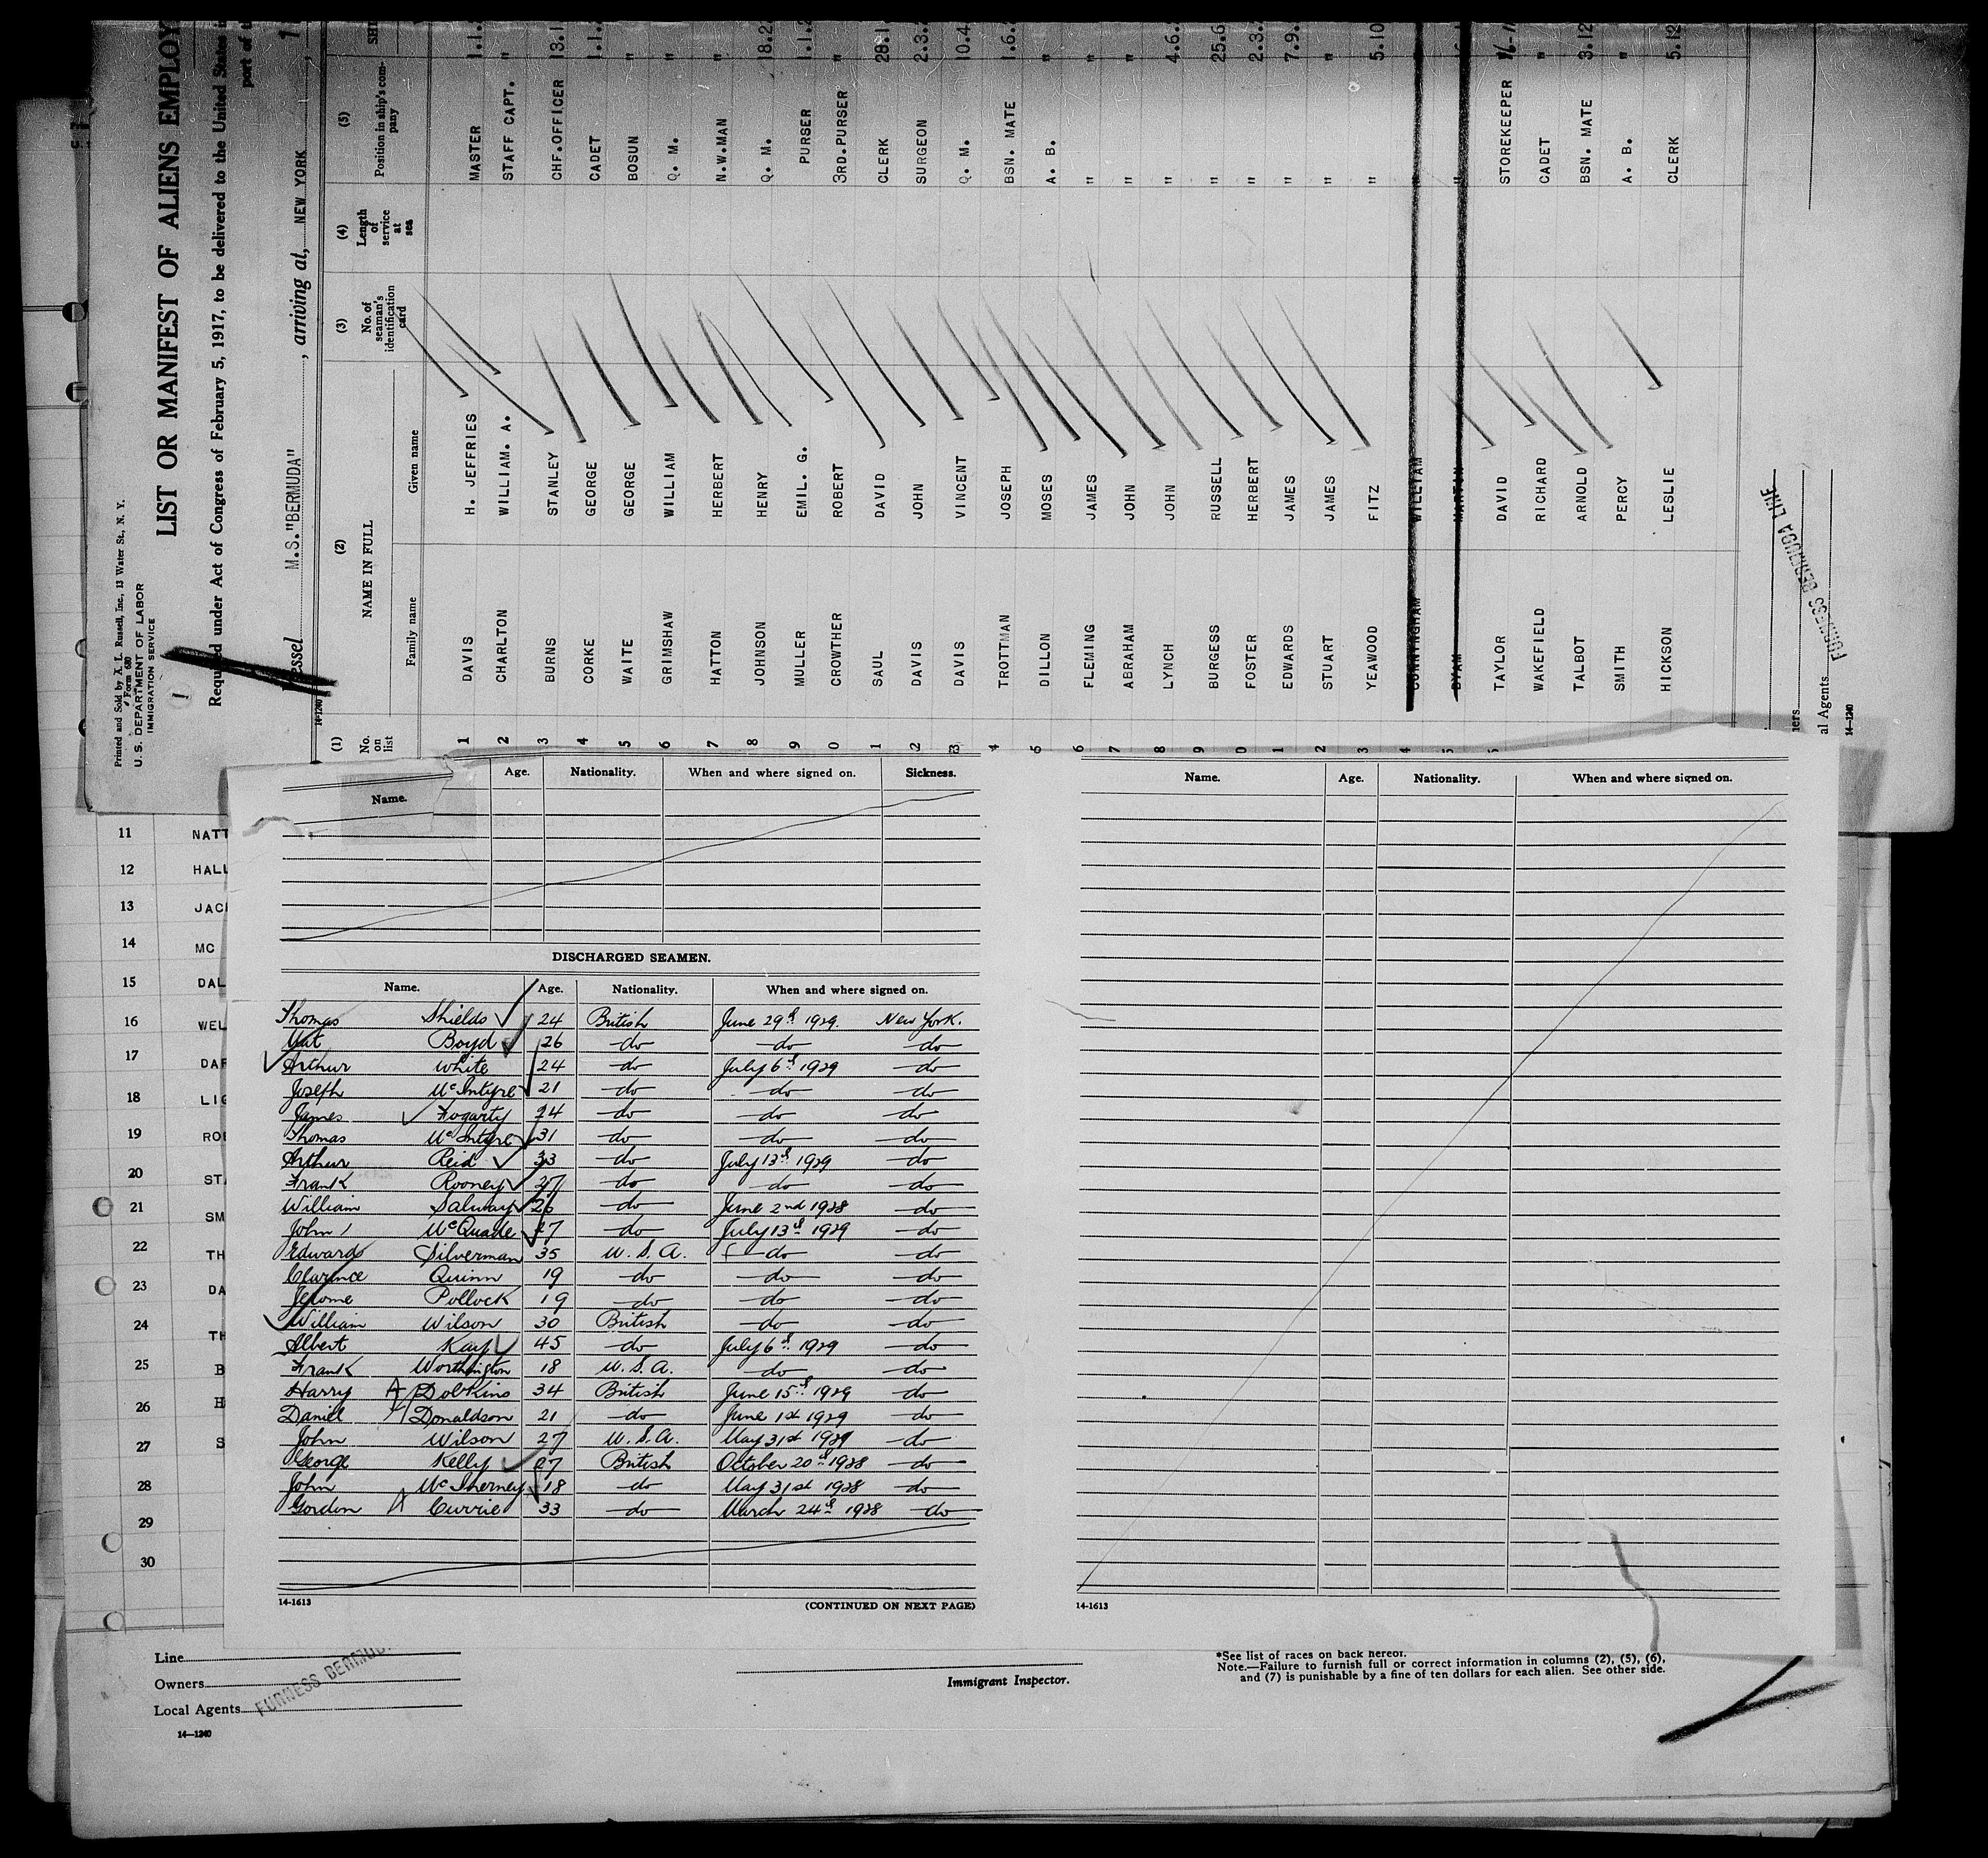 Printed and Sold by A. L. Russell, Inc., 13 Water St., N. Y.
Form 680
U. S. DEPARTMENT OF LABOR
IMMIGRATION SERVICE
LIST OR MANIFEST OF ALIENS EMPLOY
Required under Act of Congress of February 5, 1917, to be delivered to the United States
part of
essel M.S."BERMUDA", arriving at, NEW YORK
14-1240
(1) (2) (3) (4) (5)
No. on list NAME IN FULL No. of seaman's identification card Length of service at sea Position in ship's company
Family name Given name
1 DAVIS H. JEFFRIES MASTER 1.1.
2 CHARLTON WILLIAM. A. STAFF CAPT. "
3 BURNS STANLEY CHF.OFFICER 13.1
4 CORKE GEORGE CADET 1.1.
5 WAITE GEORGE BOSUN "
6 GRIMSHAW WILLIAM Q. M. "
7 HATTON HERBERT N.W.MAN "
8 JOHNSON HENRY Q. M. 18.2
9 MULLER EMIL. G. PURSER 1.1.
0 CROWTHER ROBERT 3RD.PURSER "
1 SAUL DAVID CLERK 28.1
2 DAVIS JOHN SURGEON 2.3.
3 DAVIS VINCENT Q. M. 10.4
4 TROTTMAN JOSEPH BSN. MATE 1.6.
5 DILLON MOSES A. B. "
6 FLEMING JAMES " "
7 ABRAHAM JOHN " "
8 LYNCH JOHN " 4.6.
9 BURGESS RUSSELL " 25.6
0 FOSTER HERBERT " 2.3.
1 EDWARDS JAMES " 7.9.
2 STUART JAMES " "
3 YEAWOOD FITZ " 5.10
4 CUNNINGHAM WILLIAM "
5 BYAM MARTIN "
TAYLOR DAVID STOREKEEPER
WAKEFIELD RICHARD CADET "
TALBOT ARNOLD BSN. MATE 3.12
SMITH PERCY A. B. "
HICKSON LESLIE CLERK 5.12
FURNESS BERMUDA LINE
ners
al Agents
14-1240
Name. Age. Nationality. When and where signed on. Sickness.
DISCHARGED SEAMEN.
Name. Age. Nationality. When and where signed on.
Thomas Shields 24 British June 29th 1929. New York.
Boyd 26 do do do
Arthur White 24 do July 6th 1929 do
Joseph McIntyre 21 do do do
James Fogarty 24 do do do
Thomas McIntyre 31 do do do
Arthur Reid 33 do July 13th 1929 do
Frank Rooney 27 do do do
William Salway 26 do June 2nd 1928 do
John McQuade 27 do July 13th 1929 do
Edward Silverman 35 U.S.A. do do
Clarence Quinn 19 do do do
Jerome Pollock 19 do do do
William Wilson 30 British do do
Albert Kay 45 do July 6th 1929 do
Frank Worthington 18 U.S.A. do do
Harry Dobkins 34 British June 15th 1929 do
Daniel Donaldson 21 do June 1st 1929 do
John Wilson 27 U.S.A. May 31st 1929 do
George Kelly 27 British October 20th 1928 do
John McInerney 18 do May 31st 1928 do
Gordon Currie 33 do March 24th 1928 do
14-1613
(CONTINUED ON NEXT PAGE)
Name. Age. Nationality. When and where signed on.
14-1613
11 NATT
12 HALL
13 JAC
14 MC
15 DAL
16 WEL
17 DAR
18 LIG
19 ROB
20 ST
21 SM
22 TH
23 DA
24 TH
25 B
26 H
27 S
28
29
30
Line
Owners
Local Agents
FURNESS BERMUD
14—1240
Immigrant Inspector.
*See list of races on back hereof.
Note.—Failure to furnish full or correct information in columns (2), (5), (6),
and (7) is punishable by a fine of ten dollars for each alien. See other side.